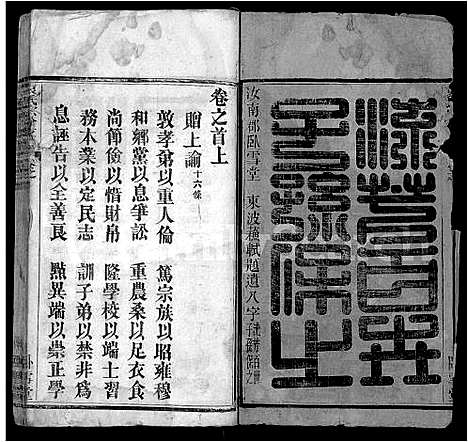 流芳百世
子孫保之
汝南郡臥雪堂 東波蘓軾題遺八字
卷之首上
贈上諭十六條
敦孝弟以重人倫 篤宗族以昭雍穆
和鄉黨以息爭訟 重農桑以足衣食
尚節儉以惜財帛 隆學校以端士習
務本業以定民志 訓子弟以禁非為
息誣告以全善良 黜異端以崇正學